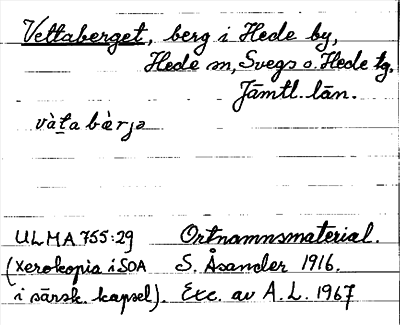 Vettaberget, berg i Hede by,
Hede sn, Svegs o. Hede tg.
Jämtl. län.
vàta bærjə
ULMA 755:29 Ortnamnsmaterial.
(xerokopia i SOA S. Åsander 1916.
i särsk. kapsel). Exc. av A.L. 1967